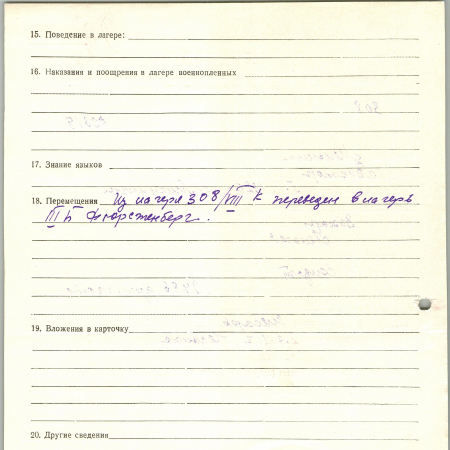 15. Поведение в лагере:
16. Наказания и поощрения в лагере военнопленных
17. Знание языков
18. Перемещения Из лагеря 308/VIII К переведен в лагерь
III b Фюрстенберг.
19. Вложения в карточку
20. Другие сведения